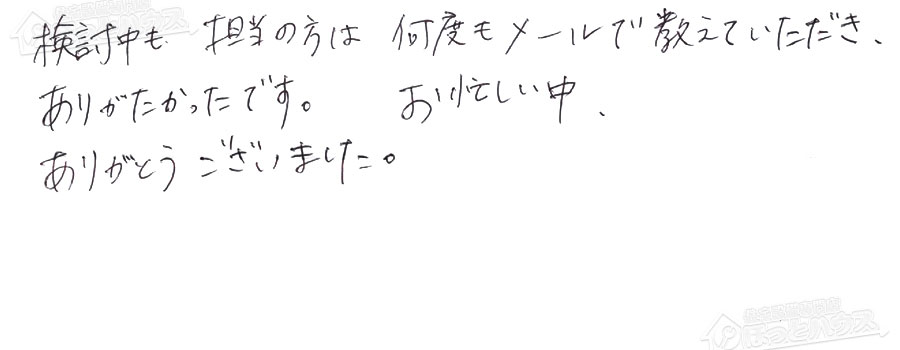 検討中も 担当の方は 何度もメールで教えていただき、
ありがたかったです。 お忙しい中、
ありがとうございました。
ほっとハウス